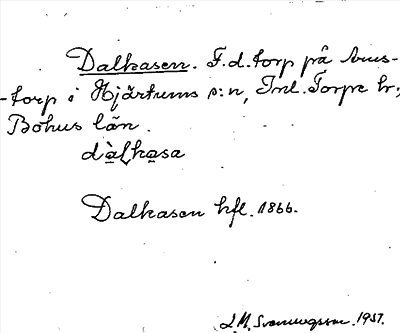 Dalkasen. F.d. torp på Anus-
-torp i Hjärtums s:n, Inl. Torpe hr;
Bohus län.
dàlkasa
Dalkasen hfl. 1866.
1957.